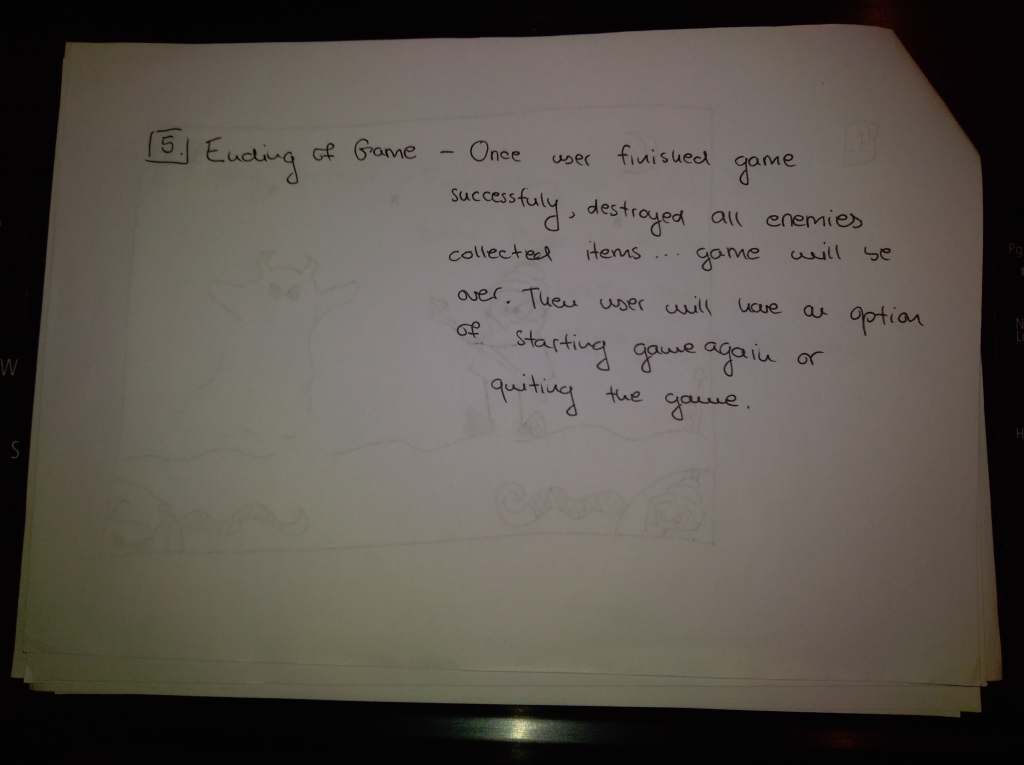 5. Ending of Game - Once user finished game
successfuly, destroyed all enemies
collected items ... game will be
over. Then user will have an option
of starting game again or
quiting the game.
W
S